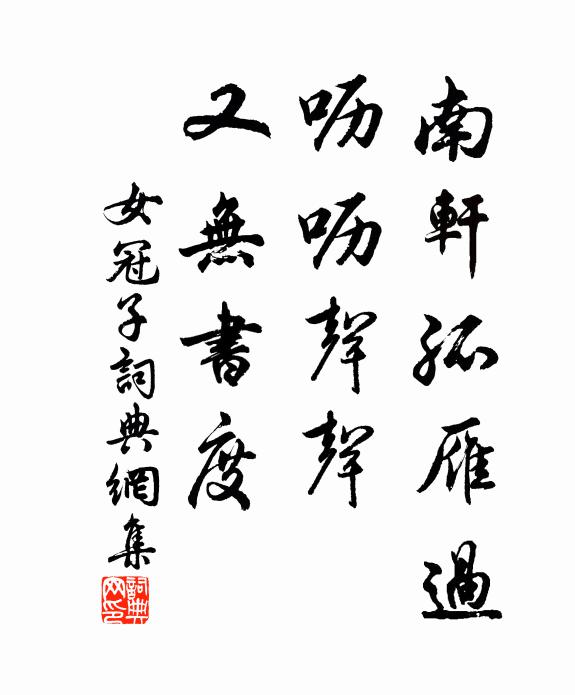 南軒孤雁過
呖呖聲聲
又無書度
女冠子詞典網集
詞典網印